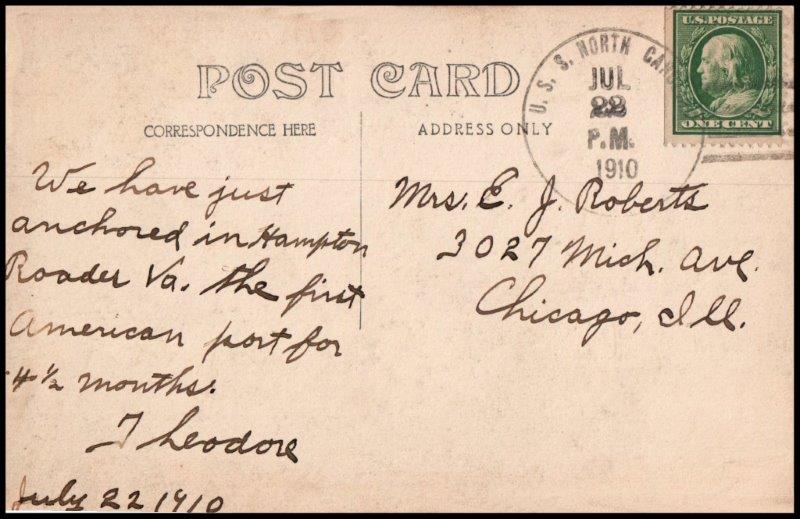 POST CARD
CORRESPONDENCE HERE
ADDRESS ONLY
U.S. POSTAGE
ONE CENT
U. S. S. NORTH CARO
JUL
22
P.M.
1910
We have just
anchored in Hampton
Roades Va. the first
American port for
4 1/2 months.
Theodore
July 22 1910
Mrs. E. J. Roberts
3027 Mich. Ave.
Chicago, Ill.